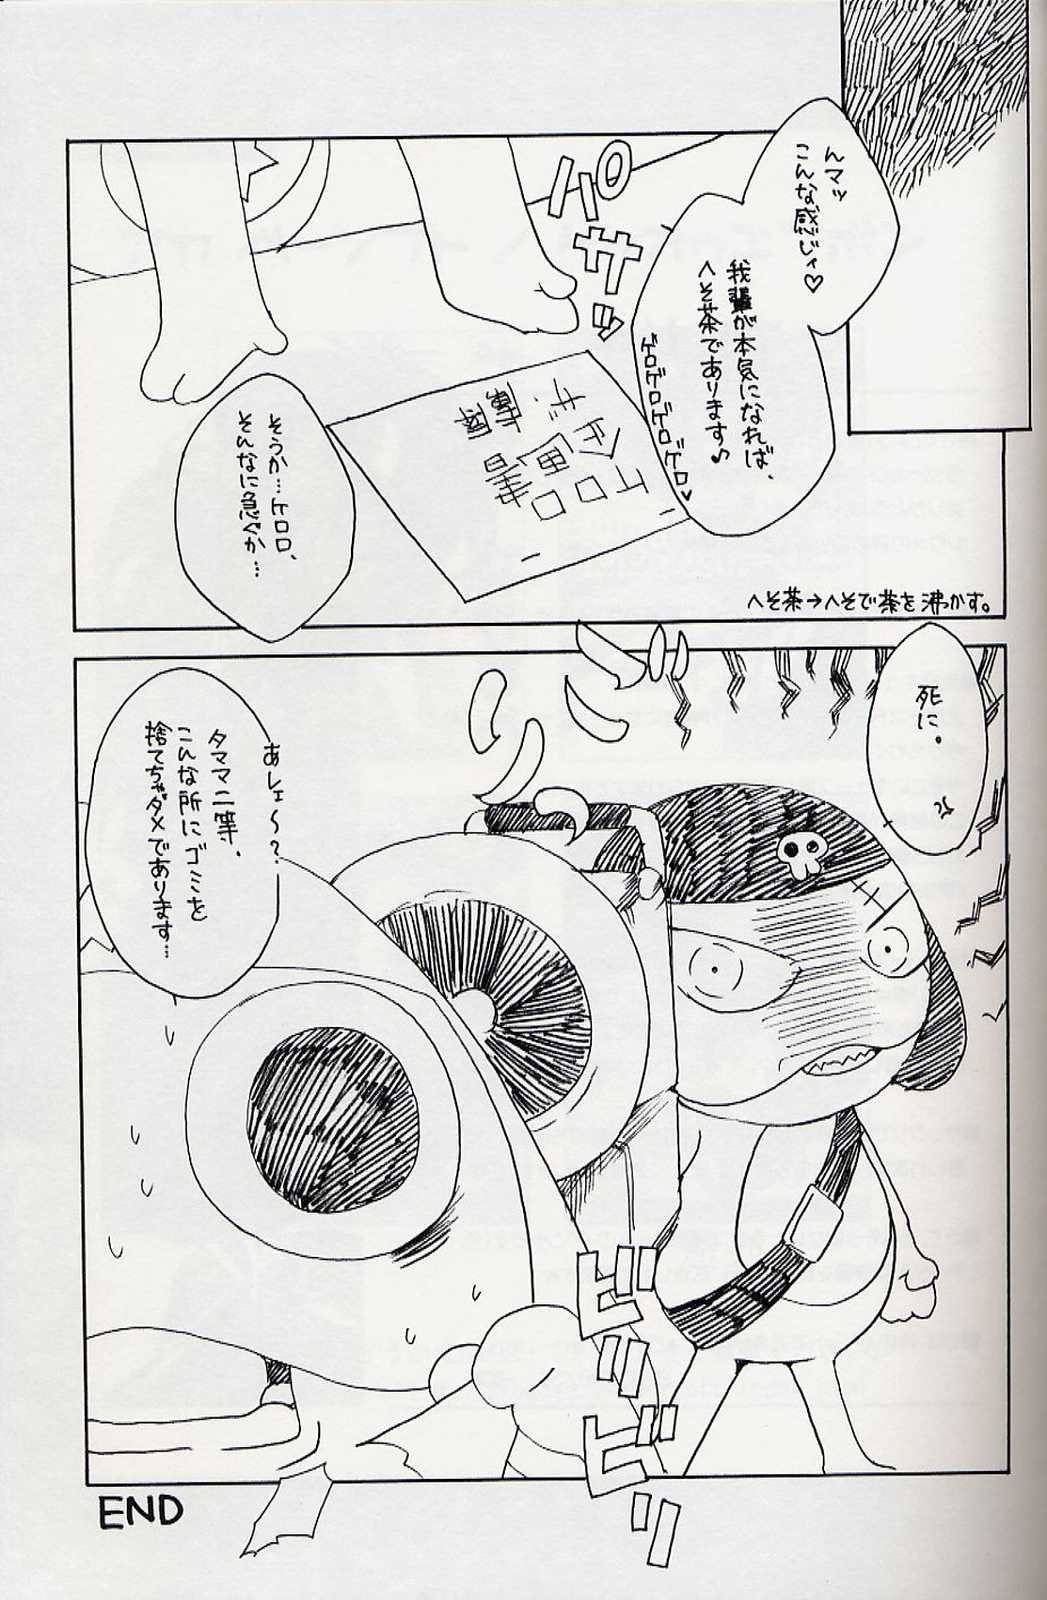 んマッ
こんな感じィ♡
我輩が本気になれば、
へそ茶であります♪
ゲロゲロゲロゲロ♥
パサッ
そうか…ケロロ、
そんなに急ぐか…
へそ茶→へそで茶を沸かす。
死に。
ズリ
あレェ〜?
タママ二等、
こんな所にゴミを
捨てちゃダメであります…
ビリビリッ
END